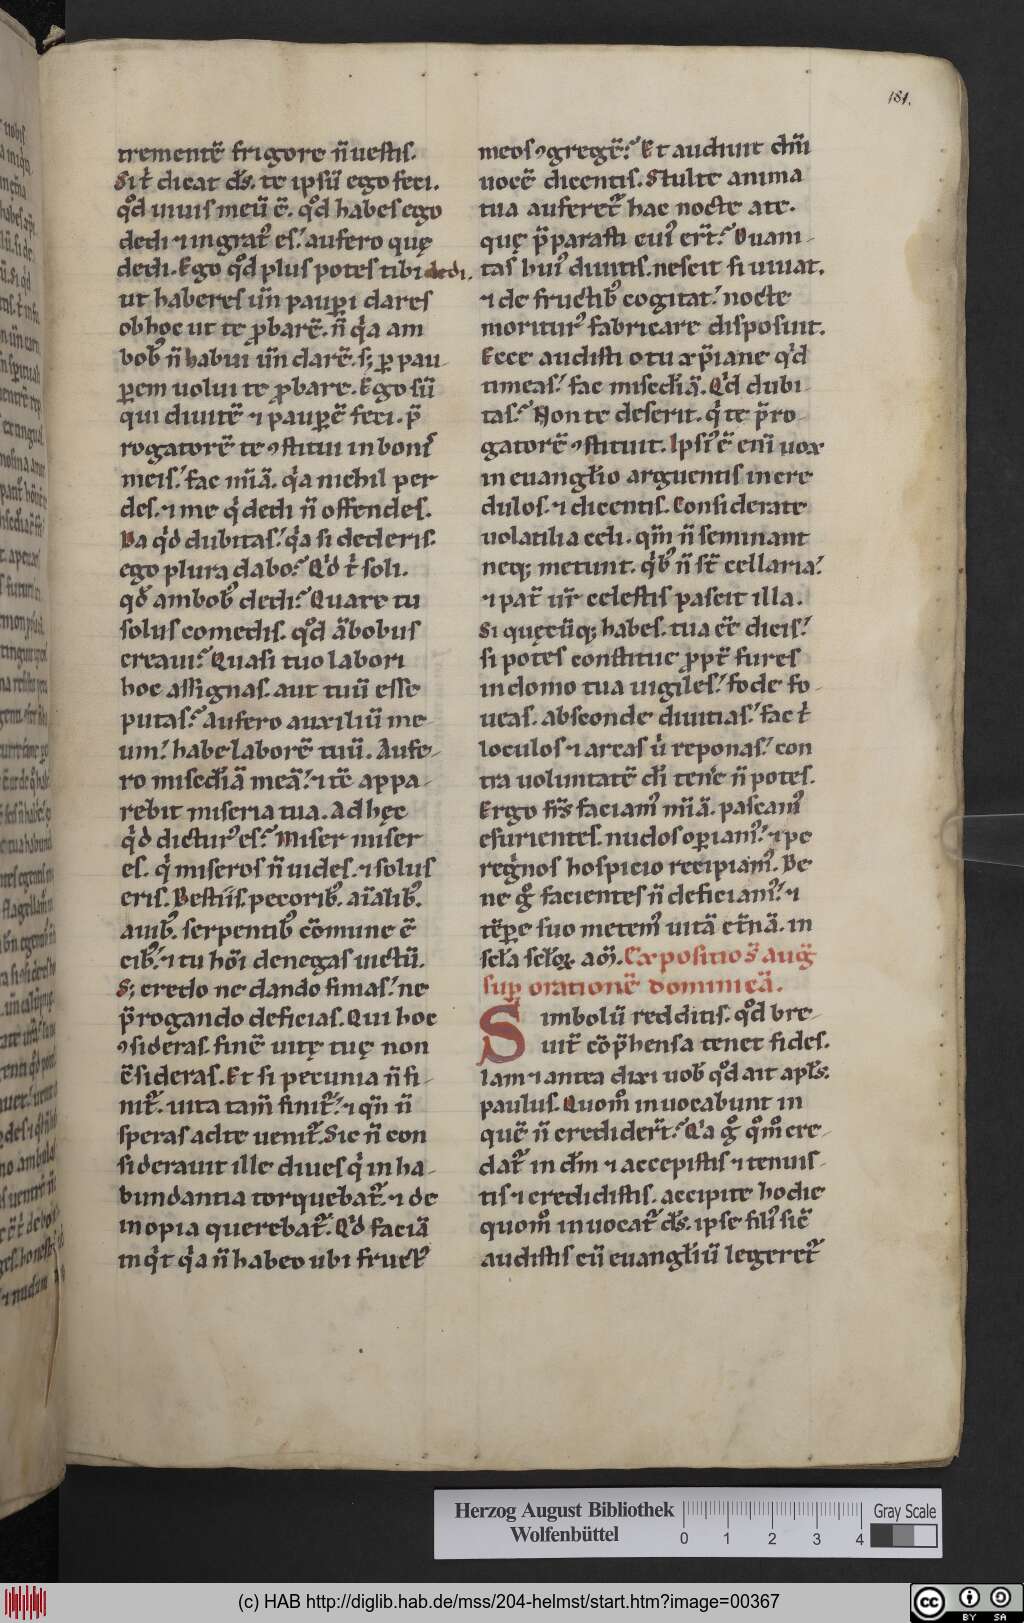 181.
trementē frigore ñ uestis.
Sit̉ dicat d̄s. te ipsū ego feci.
qd̉ uiuis meū ē. qd̉ habes ego
dedi ⁊ ingratꝰ es.' aufero quę
dedi. Ego qd̉ plus potes tibi dedi.
ut haberes uñ paupi dares
ob hoc ut te ꝓbarē. ñ qa am
bobꝰ ñ habui uñ darē. sꝫ ꝑ pau
ꝑem uolui te ꝓbare. Ego sū
qui diuitē ⁊ pauꝑē feci. p̄
rogatorē te ꝯstitui in bonis
meis.' fac mīā. qa nichil per
des. ⁊ me qi dedi ñ offendes.
Va qd dubitas.' qa si dederis.
ego plura dabo. Qd t̉ soli.
qd̉ ambobꝰ dedi. Quare tu
solus comedis. qd̉ ābobus
creaui. Quasi tuo labori
hoc assignas. aut tuū esse
putas. Aufero auxiliū me
um.' habe laborē tuū. Aufe-
ro misc̄diā meā.' ⁊ tē appa-
rebit miseria tua. Ad hęc
qd dicturꝰ es. Miser miser
es. qi miseros ñ uides. ⁊ solus
eris. Bestiis. pecoribꝰ. aīalibꝰ.
auibꝰ. serpentibꝰ cōmune ē
cibꝰ.' ⁊ tu hōi denegas uictū.
Sꝫ credo ne dando finias.' ne
p̄rogando deficias. Qui hoc
ꝯsideras. finē uitę tuę non
c̄sideras. Et si pecunia ñ fi-
nit̉. uita tam̄ finit̉.' ⁊ qn̄ ñ
speras ad te uenit̉. Sic ñ con
siderauit ille diues qi in ha-
bundantia torquebat̉. ⁊ de
inopia querebat̉. Qd faciā
inqt qa ñ habeo ubi fructꝰ
meos ꝯgregē. Et audiuit dm̄i
uocē dicentis. Stulte anima
tua aufert̉ hac nocte a te.
quę p̄parasti cuiꝰ er̄t. Quam-
tas huiꝰ diuitis. nescit si uiuat.
⁊ de fructibꝰ cogitat.' nocte
moriturꝰ fabricare disposuit.
Ecce audisti o tu xp̄iane qd
timeas.' fac misc̄diā. Qd dubi
tas. Non te deserit. qi te p̄ro-
gatorē ꝯstituit. Ipsiꝰ ē eni uox
in euanglio arguentis incre
dulos. ⁊ dicentis. Considerate
uolatilia celi. qm̄ ñ seminant
neqꝫ metunt. qibꝰ ñ st̄ cellaria.'
⁊ pat̄ ur̄ celestis pascit illa.
Si quęcūqꝫ habes. tua eē dicis.'
si potes constitue ꝓpt̄ fures
in domo tua uigiles.' fode fo-
ueas. absconde diuitias.' fac t̉
loculos ⁊ arcas ubi reponas.' con
tra uoluntatē di tene ñ potes.
Ergo fr̄s faciamꝰ mīā. pascamꝰ
esurientes. nudos oꝑiamꝰ.' ⁊ pe
regnos hospicio recipiamꝰ. Be
ne g̉ facientes ñ deficiamꝰ.' ⁊
tēꝑe suo metemꝰ uitā et̄nā. in
scla sclꝝ am̄. Expositio s̄ aug̉
sup orationē dominicā.
Simbolū redditis. qd̉ bre-
uit̄ cōp̄hensa tenet fides.
Iam ⁊ antea dixi uob̉ qd̉ ait apl̄s.
paulus. Quom̉ inuocabunt in
quē ñ crediderт̄. Qa g̉ qm̉ cre-
dat̉ in dm̄ ⁊ accepistis ⁊ tenuis-
tis ⁊ credidistis. accipite hodie
quom̉ inuocat̉ d̄s. ipse filiꝰ sic̄
audistis cū euangliū legeret̉
Herzog August Bibliothek
Wolfenbüttel
0 1 2 3 4
Gray Scale
(c) HAB http://diglib.hab.de/mss/204-helmst/start.htm?image=00367
cc BY SA